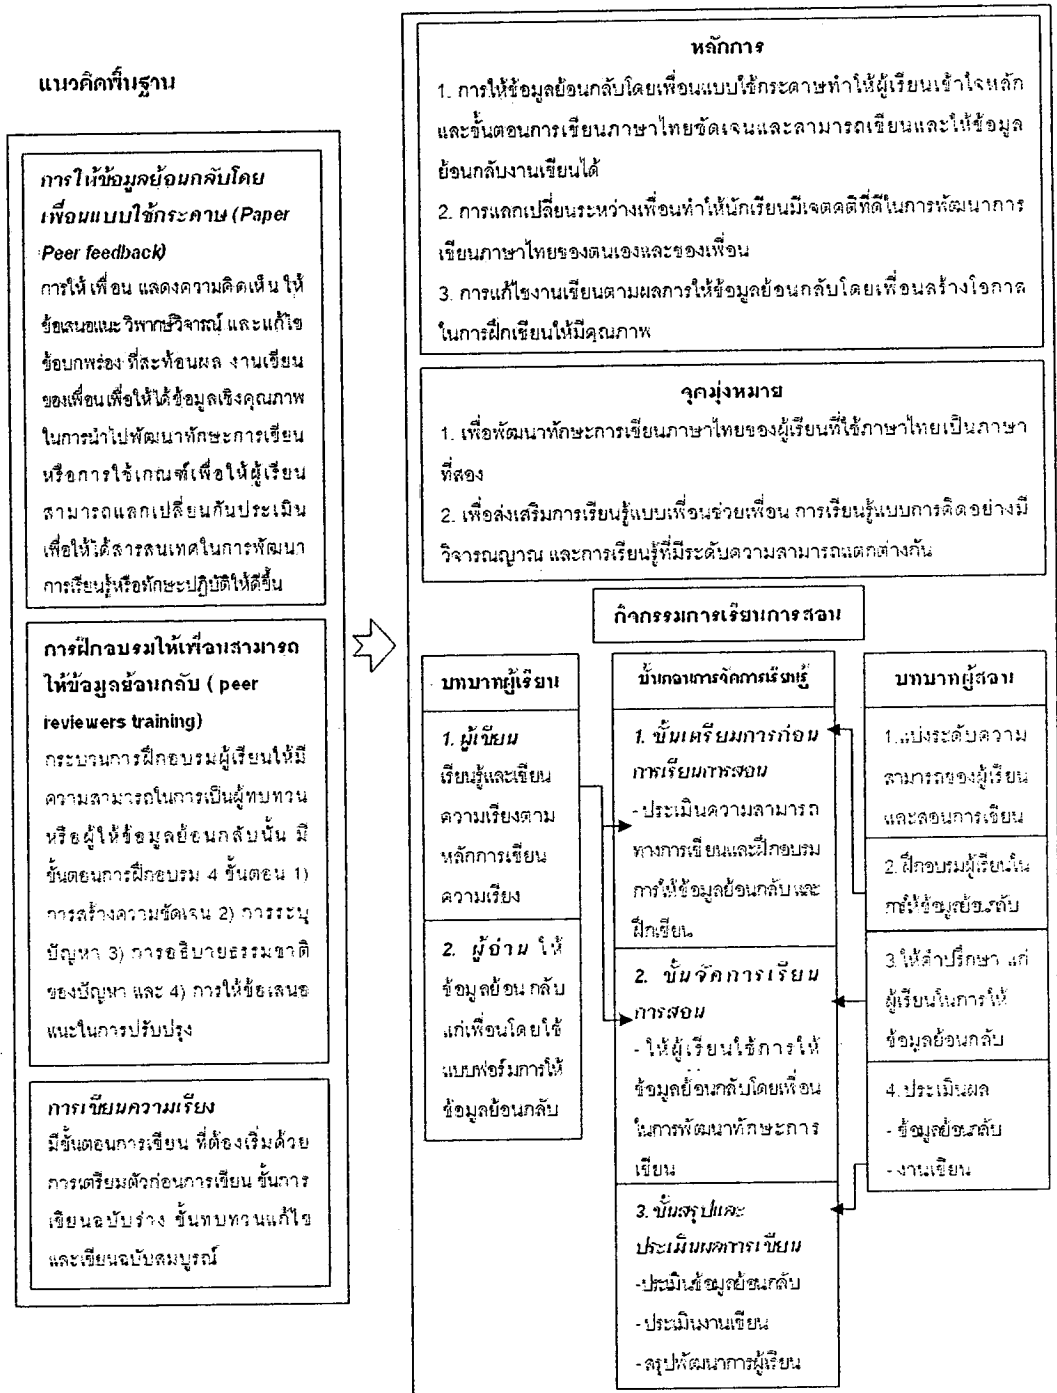 แนวคิดพื้นฐาน
การให้ข้อมูลย้อนกลับโดย
เพื่อนแบบใช้กระดาษ (Paper
Peer feedback)
การให้ เพื่อน แสดงความคิดเห็น ให้
ข้อเสนอแนะ วิพากษ์วิจารณ์ และแก้ไข
ข้อบกพร่อง ที่สะท้อนผล งานเขียน
ของเพื่อน เพื่อให้ได้ข้อมูลเชิงคุณภาพ
ในการนำไปพัฒนาทักษะการเขียน
หรือการใช้เกณฑ์เพื่อให้ผู้เรียน
สามารถแลกเปลี่ยนกันประเมิน
เพื่อให้ได้สารสนเทศในการพัฒนา
การเรียนรู้หรือทักษะปฏิบัติให้ดีขึ้น
การฝึกอบรมให้เพื่อนสามารถ
ให้ข้อมูลย้อนกลับ ( peer
reviewers training)
กระบวนการฝึกอบรมผู้เรียนให้มี
ความสามารถในการเป็นผู้ทบทวน
หรือผู้ให้ข้อมูลย้อนกลับนั้น มี
ขั้นตอนการฝึกอบรม 4 ขั้นตอน 1)
การสร้างความชัดเจน 2) การระบุ
ปัญหา 3) การอธิบายธรรมชาติ
ของปัญหา และ 4) การให้ข้อเสนอ
แนะในการปรับปรุง
การเขียนความเรียง
มีขั้นตอนการเขียน ที่ต้องเริ่มด้วย
การเตรียมตัวก่อนการเขียน ขั้นการ
เขียนฉบับร่าง ขั้นทบทวนแก้ไข
และเขียนฉบับสมบูรณ์
หลักการ
1. การให้ข้อมูลย้อนกลับโดยเพื่อนแบบใช้กระดาษทำให้ผู้เรียนเข้าใจหลัก
และขั้นตอนการเขียนภาษาไทยชัดเจนและสามารถเขียนและให้ข้อมูล
ย้อนกลับงานเขียนได้
2. การแลกเปลี่ยนระหว่างเพื่อนทำให้นักเรียนมีเจตคติที่ดีในการพัฒนาการ
เขียนภาษาไทยของตนเองและของเพื่อน
3. การแก้ไขงานเขียนตามผลการให้ข้อมูลย้อนกลับโดยเพื่อนสร้างโอกาส
ในการฝึกเขียนให้มีคุณภาพ
จุดมุ่งหมาย
1. เพื่อพัฒนาทักษะการเขียนภาษาไทยของผู้เรียนที่ใช้ภาษาไทยเป็นภาษา
ที่สอง
2. เพื่อส่งเสริมการเรียนรู้แบบเพื่อนช่วยเพื่อน การเรียนรู้แบบการคิดอย่างมี
วิจารณญาณ และการเรียนรู้ที่มีระดับความสามารถแตกต่างกัน
กิจกรรมการเรียนการสอน
บทบาทผู้เรียน
1. ผู้เขียน
เรียนรู้และเขียน
ความเรียงตาม
หลักการเขียน
ความเรียง
2. ผู้อ่าน ให้
ข้อมูลย้อน กลับ
แก่เพื่อนโดยใช้
แบบฟอร์มการให้
ข้อมูลย้อนกลับ
ขั้นตอนการจัดการเรียนรู้
1. ขั้นเตรียมการก่อน
การเรียนการสอน
- ประเมินความสามารถ
ทางการเขียนและฝึกอบรม
การให้ข้อมูลย้อนกลับ และ
ฝึกเขียน
2. ขั้นจัดการเรียน
การสอน
- ให้ผู้เรียนใช้การให้
ข้อมูลย้อนกลับโดยเพื่อน
ในการพัฒนาทักษะการ
เขียน
3. ขั้นสรุปและ
ประเมินผลการเขียน
-ประเมินข้อมูลย้อนกลับ
- ประเมินงานเขียน
- สรุปพัฒนาการผู้เรียน
บทบาทผู้สอน
1.แบ่งระดับความ
สามารถของผู้เรียน
และสอนการเขียน
2. ฝึกอบรมผู้เรียนใน
การให้ข้อมูลย้อนกลับ
3.ให้คำปรึกษา แก่
ผู้เรียนในการให้
ข้อมูลย้อนกลับ
4. ประเมินผล
- ข้อมูลย้อนกลับ
- งานเขียน